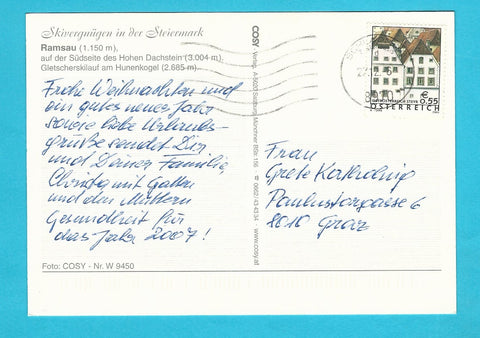 Skivergnügen in der Steiermark
Ramsau (1.150 m),
auf der Südseite des Hohen Dachstein (3.004 m).
Gletscherskilauf am Hunerkogel (2.685 m).
Frohe Weihnachten und
ein gutes neues Jahr
sowie liebe Urlaubs-
grüße sendet Dir
und Deiner Familie
Christa mit Gatten
und den Müttern
Gesundheit für
das Jahr 2007!
Foto: COSY - Nr. W 9450
COSY Verlag, A-5020 Salzburg
0662/43 43 34
www.cosy.at
€
0,55
ÖSTERREICH
Frau
Grete
Paulustorgasse 6
8010 Graz